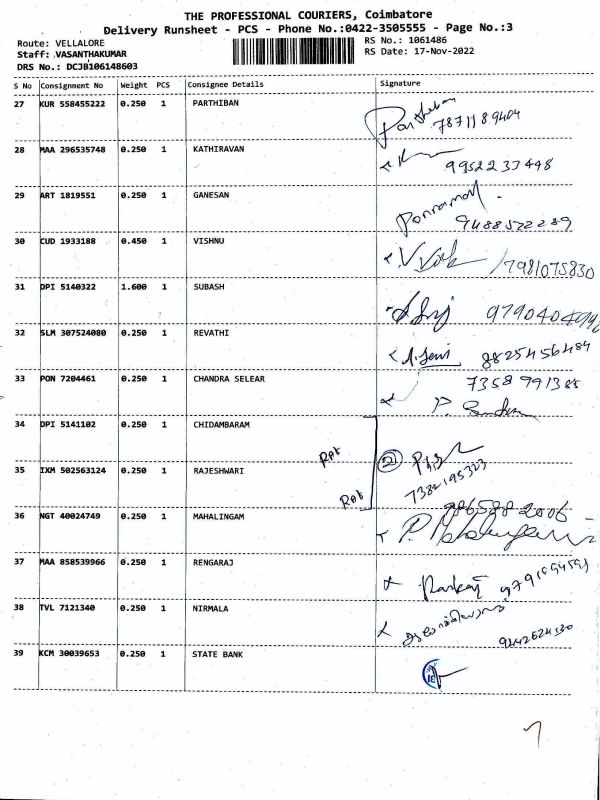 THE PROFESSIONAL COURIERS, Coimbatore
Delivery Runsheet - PCS - Phone No.:0422-3505555 - Page No.:3
Route: VELLALORE RS No.: 1061486
Staff: VASANTHAKUMAR RS Date: 17-Nov-2022
DRS No.: DCJB106148603
S No Consignment No Weight PCS Consignee Details Signature
27 KUR 558455222 0.250 1 PARTHIBAN Parthiban
7871189404
28 MAA 296535748 0.250 1 KATHIRAVAN
9952233448
29 ART 1819551 0.250 1 GANESAN
9488522289
30 CUD 1933188 0.450 1 VISHNU
7981075830
31 DPI 5140322 1.600 1 SUBASH
32 SLM 307524080 0.250 1 REVATHI
8825456484
33 PON 7204461 0.250 1 CHANDRA SELEAR
7358991385
34 DPI 5141102 0.250 1 CHIDAMBARAM
2
35 IXM 502563124 0.250 1 RAJESHWARI
7382195323
36 NGT 40024749 0.250 1 MAHALINGAM
37 MAA 858539966 0.250 1 RENGARAJ
38 TVL 7121340 0.250 1 NIRMALA
39 KCM 30039653 0.250 1 STATE BANK